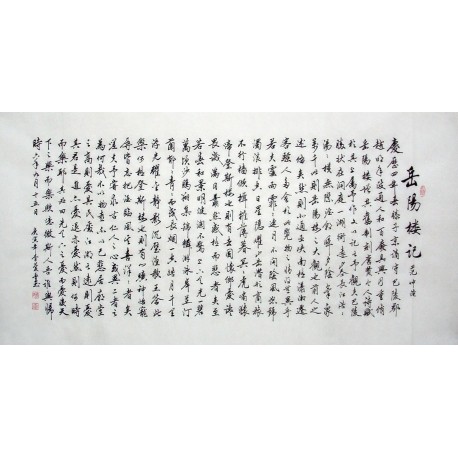 岳陽楼記 范仲淹
慶曆四年春滕子京謫守巴陵郡
越明年政通人和百廢具興乃重修
岳陽楼增其舊制刻唐賢今人詩賦
於其上屬予作文以記之予觀夫巴陵
勝狀在洞庭一湖銜遠山吞長江浩
湯橫無際涯朝暉夕陰氣象
萬千此則岳陽楼之大觀也前人之
述備矣然則北通巫峽南極瀟湘遷
客騷人多會於此覽物之情得無異乎
若夫霪雨霏霏連月不開陰風怒號
濁浪排空日星隱耀山岳潛形商旅
不行檣傾楫摧薄暮冥冥虎嘯猿
啼登斯楼也則有去國懷鄉憂讒
畏譏滿目蕭然感極而悲者矣至
若春和景明波瀾不驚上下天光一碧
萬頃沙鷗翔集錦鱗游泳岸芷汀
蘭郁郁青青而或長煙一空皓月千里
浮光躍金靜影沉璧漁歌互答此
樂何極登斯楼也則有心曠神怡寵
辱皆忘把酒臨風其喜洋洋者矣
嗟夫予嘗求古仁人之心或異二者之
為何哉不以物喜不以己悲居廟堂
之高則憂其民處江湖之遠則憂
其君是進亦憂退亦憂然則何時
而樂耶其必曰先天下之憂而憂後天
下之樂而樂歟噫微斯人吾誰與歸
時六年九月十五日 庚寅年